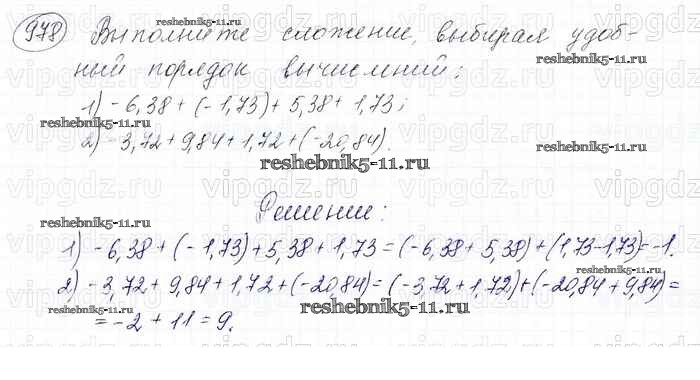 978 Выполните сложение, выбирая удоб-
ный порядок вычислений:
1) -6,38 + (-1,73) + 5,38 + 1,73;
2) -3,72 + 9,84 + 1,72 + (-20,84).
Решение:
1) -6,38 + (-1,73) + 5,38 + 1,73 = (-6,38 + 5,38) + (1,73-1,73) = -1.
2) -3,72 + 9,84 + 1,72 + (-20,84) = (-3,72 + 1,72) + (-20,84 + 9,84) =
= -2 + 11 = 9.
reshebnik5-11.ru
reshebnik5-11.ru
reshebnik5-11.ru
reshebnik5-11.ru
reshebnik5-11.ru
reshebnik5-11.ru
reshebnik5-11.ru
reshebnik5-11.ru
vipgdz.ru